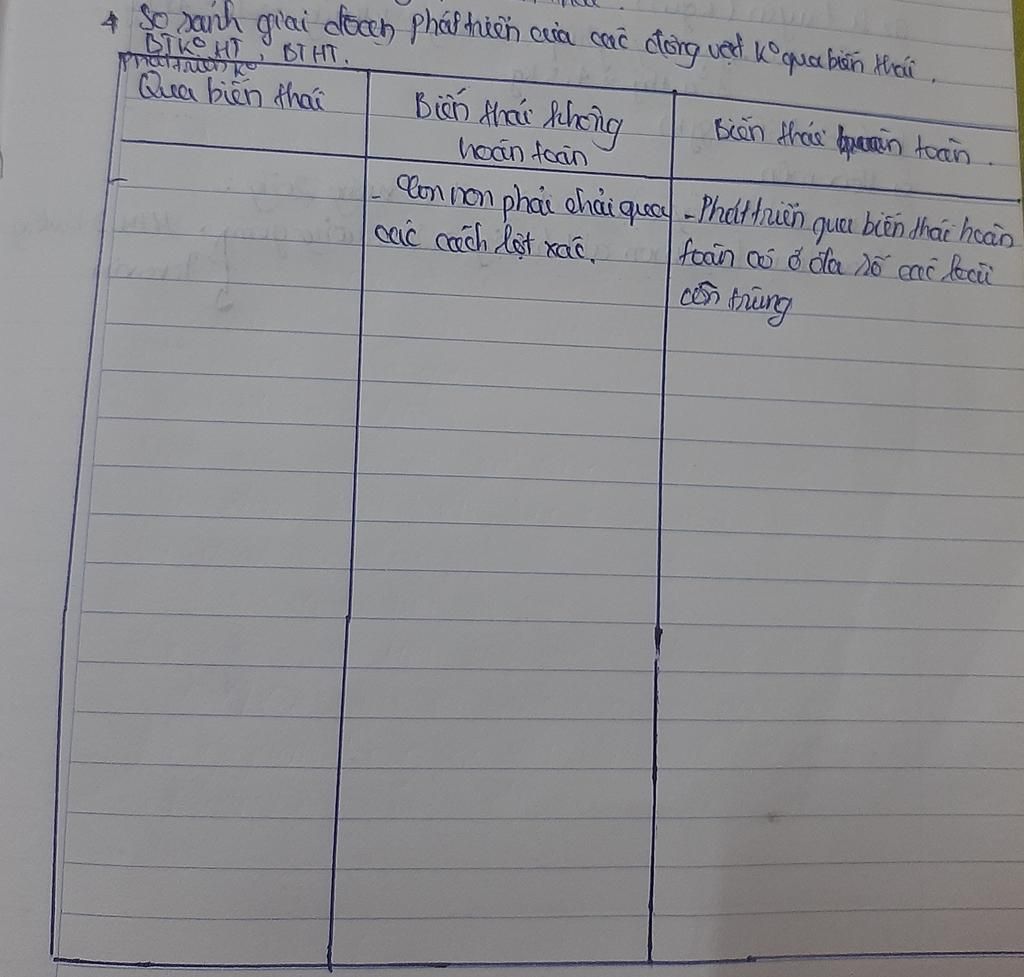 * So sánh giai đoạn phát triển của các động vật k° qua biến thái,
BTK° HT, BTHT.
Phát triển k°
Qua biến thái
Biến thái không
hoàn toàn
Biến thái hoàn toàn.
- Con non phải chải qua
các cách lột xác.
- Phát triển qua biến thái hoàn
toàn có ở đa số các loài
côn trùng